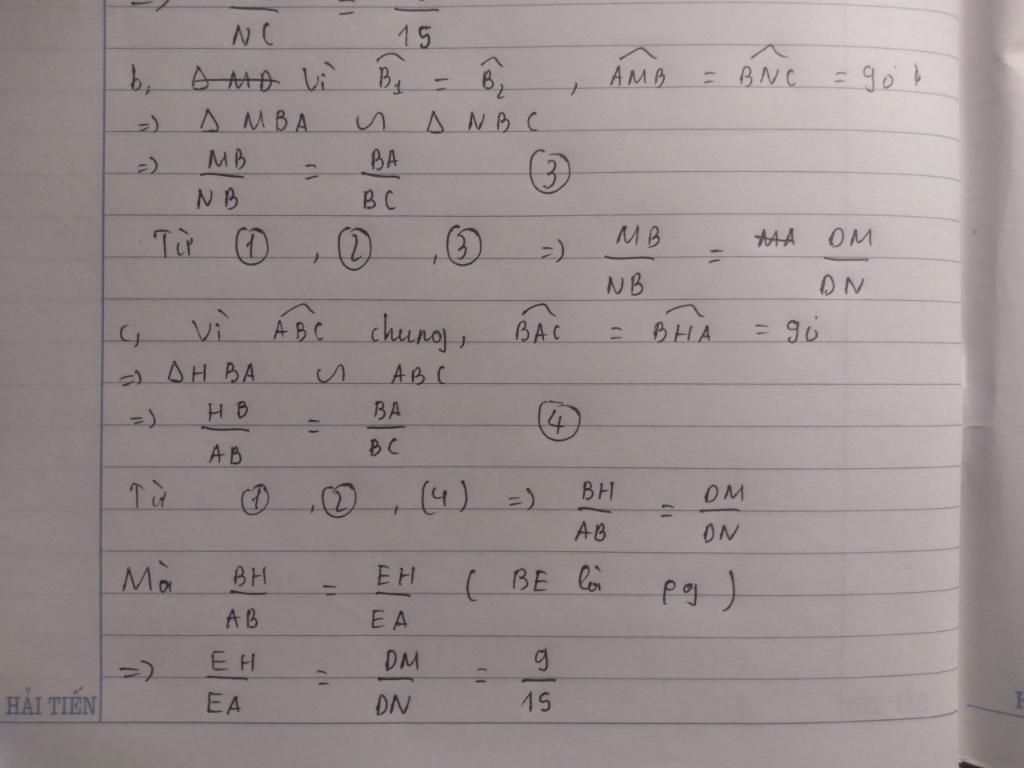 =) —/NC = —/15
b, Δ MB Vì B̂₁ = B̂₂ , AMB = BNC = 90
=) Δ MBA ∽ Δ NBC
=) MB/NB = BA/BC ③
Từ ① , ② , ③ =) MB/NB = MA DM/DN
c, Vì ABC chung, BAC = BHA = 90
=) ΔHBA ∽ ABC
=) HB/AB = BA/BC ④
Từ ① , ② , (4) =) BH/AB = DM/DN
Mà BH/AB = EH/EA ( BE là pg )
=) EH/EA = DM/DN = 9/15
HẢI TIẾN